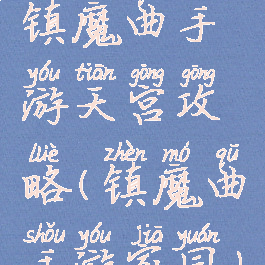 镇魔曲手
yóu tiān gōng gōng
游天宫攻
lüè zhèn mó qū
略(镇魔曲
shǒu yóu jiā yuán
手游家园)